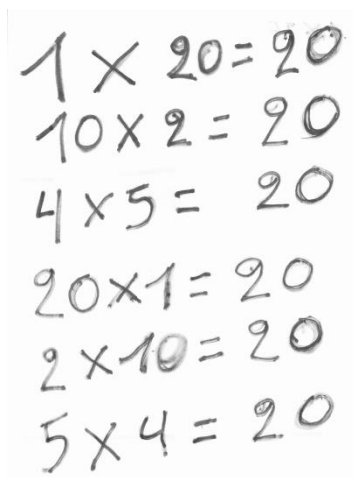 1 × 20 = 20
10 × 2 = 20
4 × 5 = 20
20 × 1 = 20
2 × 10 = 20
5 × 4 = 20